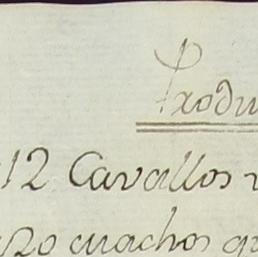 Produ
12 Cavallos
20 muchos qu